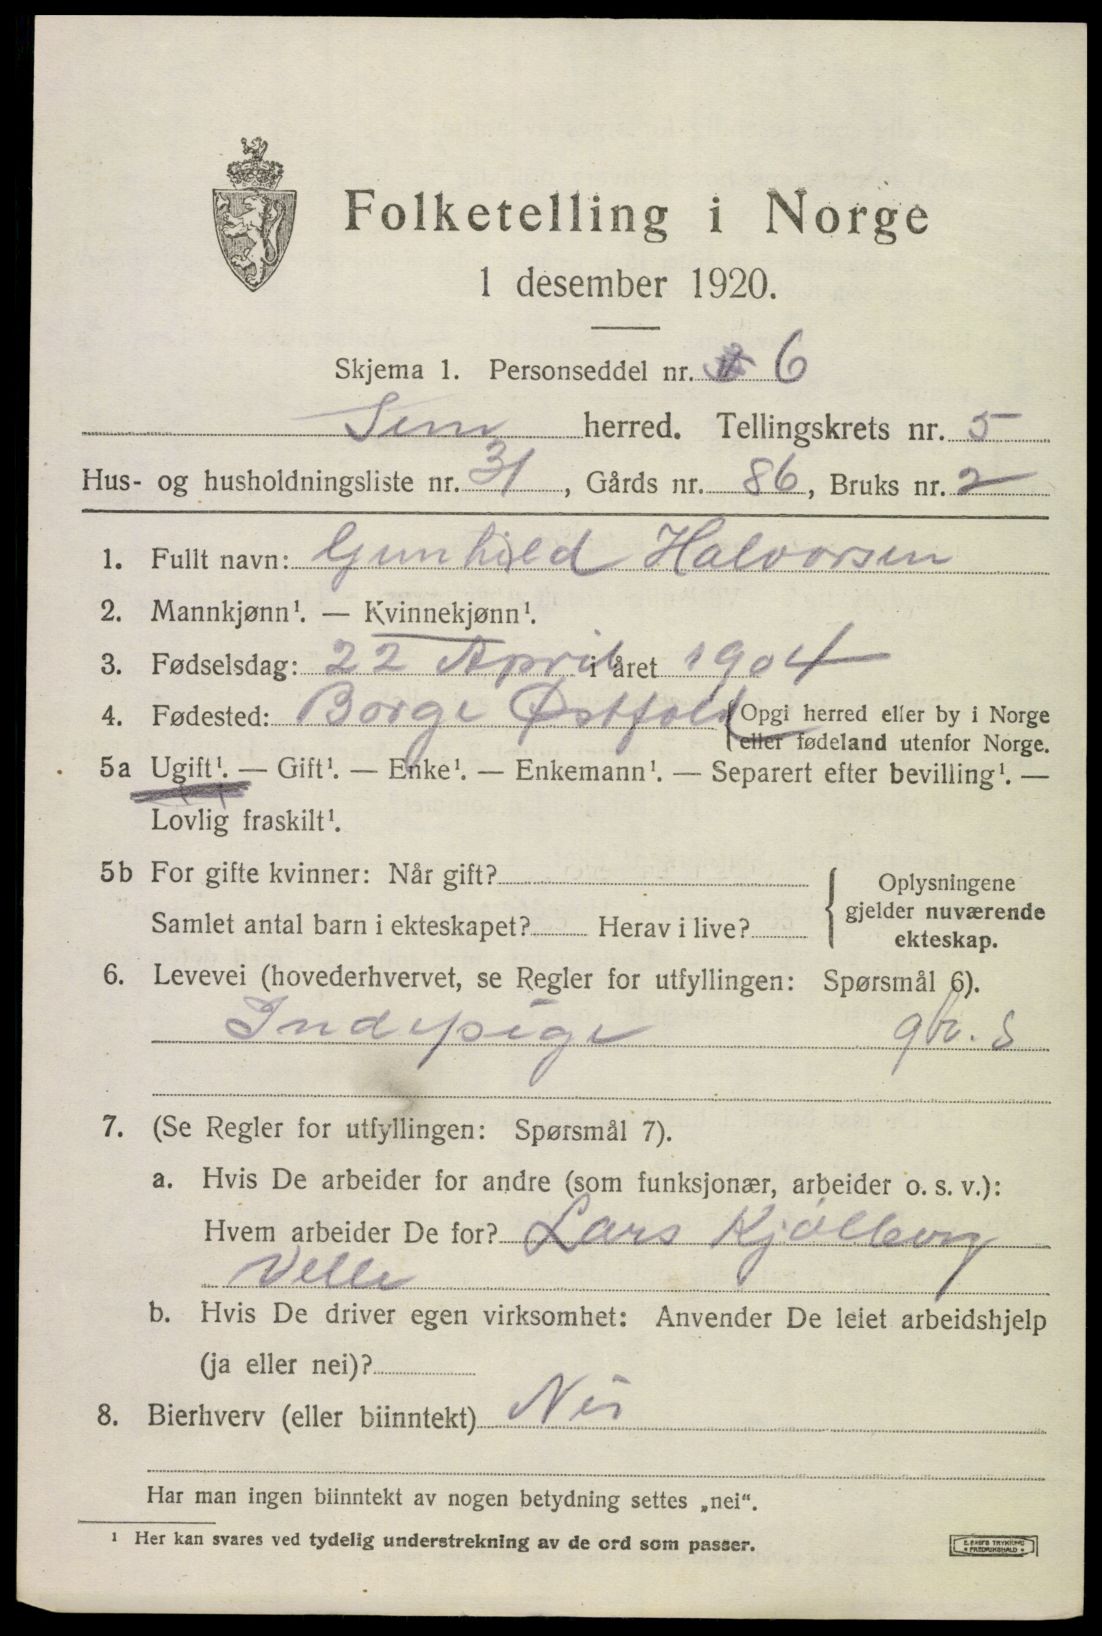 Folketelling i Norge
1 desember 1920.
Skjema 1. Personseddel nr. 6
Sem herred. Tellingskrets nr. 5
Hus- og husholdningsliste nr. 31, Gårds nr. 86, Bruks nr. 2
1. Fullt navn: Gunhild Halvorsen
2. Mannkjønn¹. — Kvinnekjønn¹.
3. Fødselsdag: 22 April i året 1904
4. Fødested: Borge Østfold {Opgi herred eller by i Norge
eller fødeland utenfor Norge.
5a Ugift¹. — Gift¹. — Enke¹. — Enkemann¹. — Separert efter bevilling¹. —
Lovlig fraskilt¹.
5b For gifte kvinner: Når gift?
Samlet antal barn i ekteskapet? Herav i live?
{ Oplysningene
gjelder nuværende
ekteskap.
6. Levevei (hovederhvervet, se Regler for utfyllingen: Spørsmål 6).
Indepige
7. (Se Regler for utfyllingen: Spørsmål 7).
a. Hvis De arbeider for andre (som funksjonær, arbeider o. s. v.):
Hvem arbeider De for? Lars Kjølberg
Velle
b. Hvis De driver egen virksomhet: Anvender De leiet arbeidshjelp
(ja eller nei)?
8. Bierhverv (eller biinntekt) Nei
Har man ingen biinntekt av nogen betydning settes „nei“.
¹ Her kan svares ved tydelig understrekning av de ord som passer.